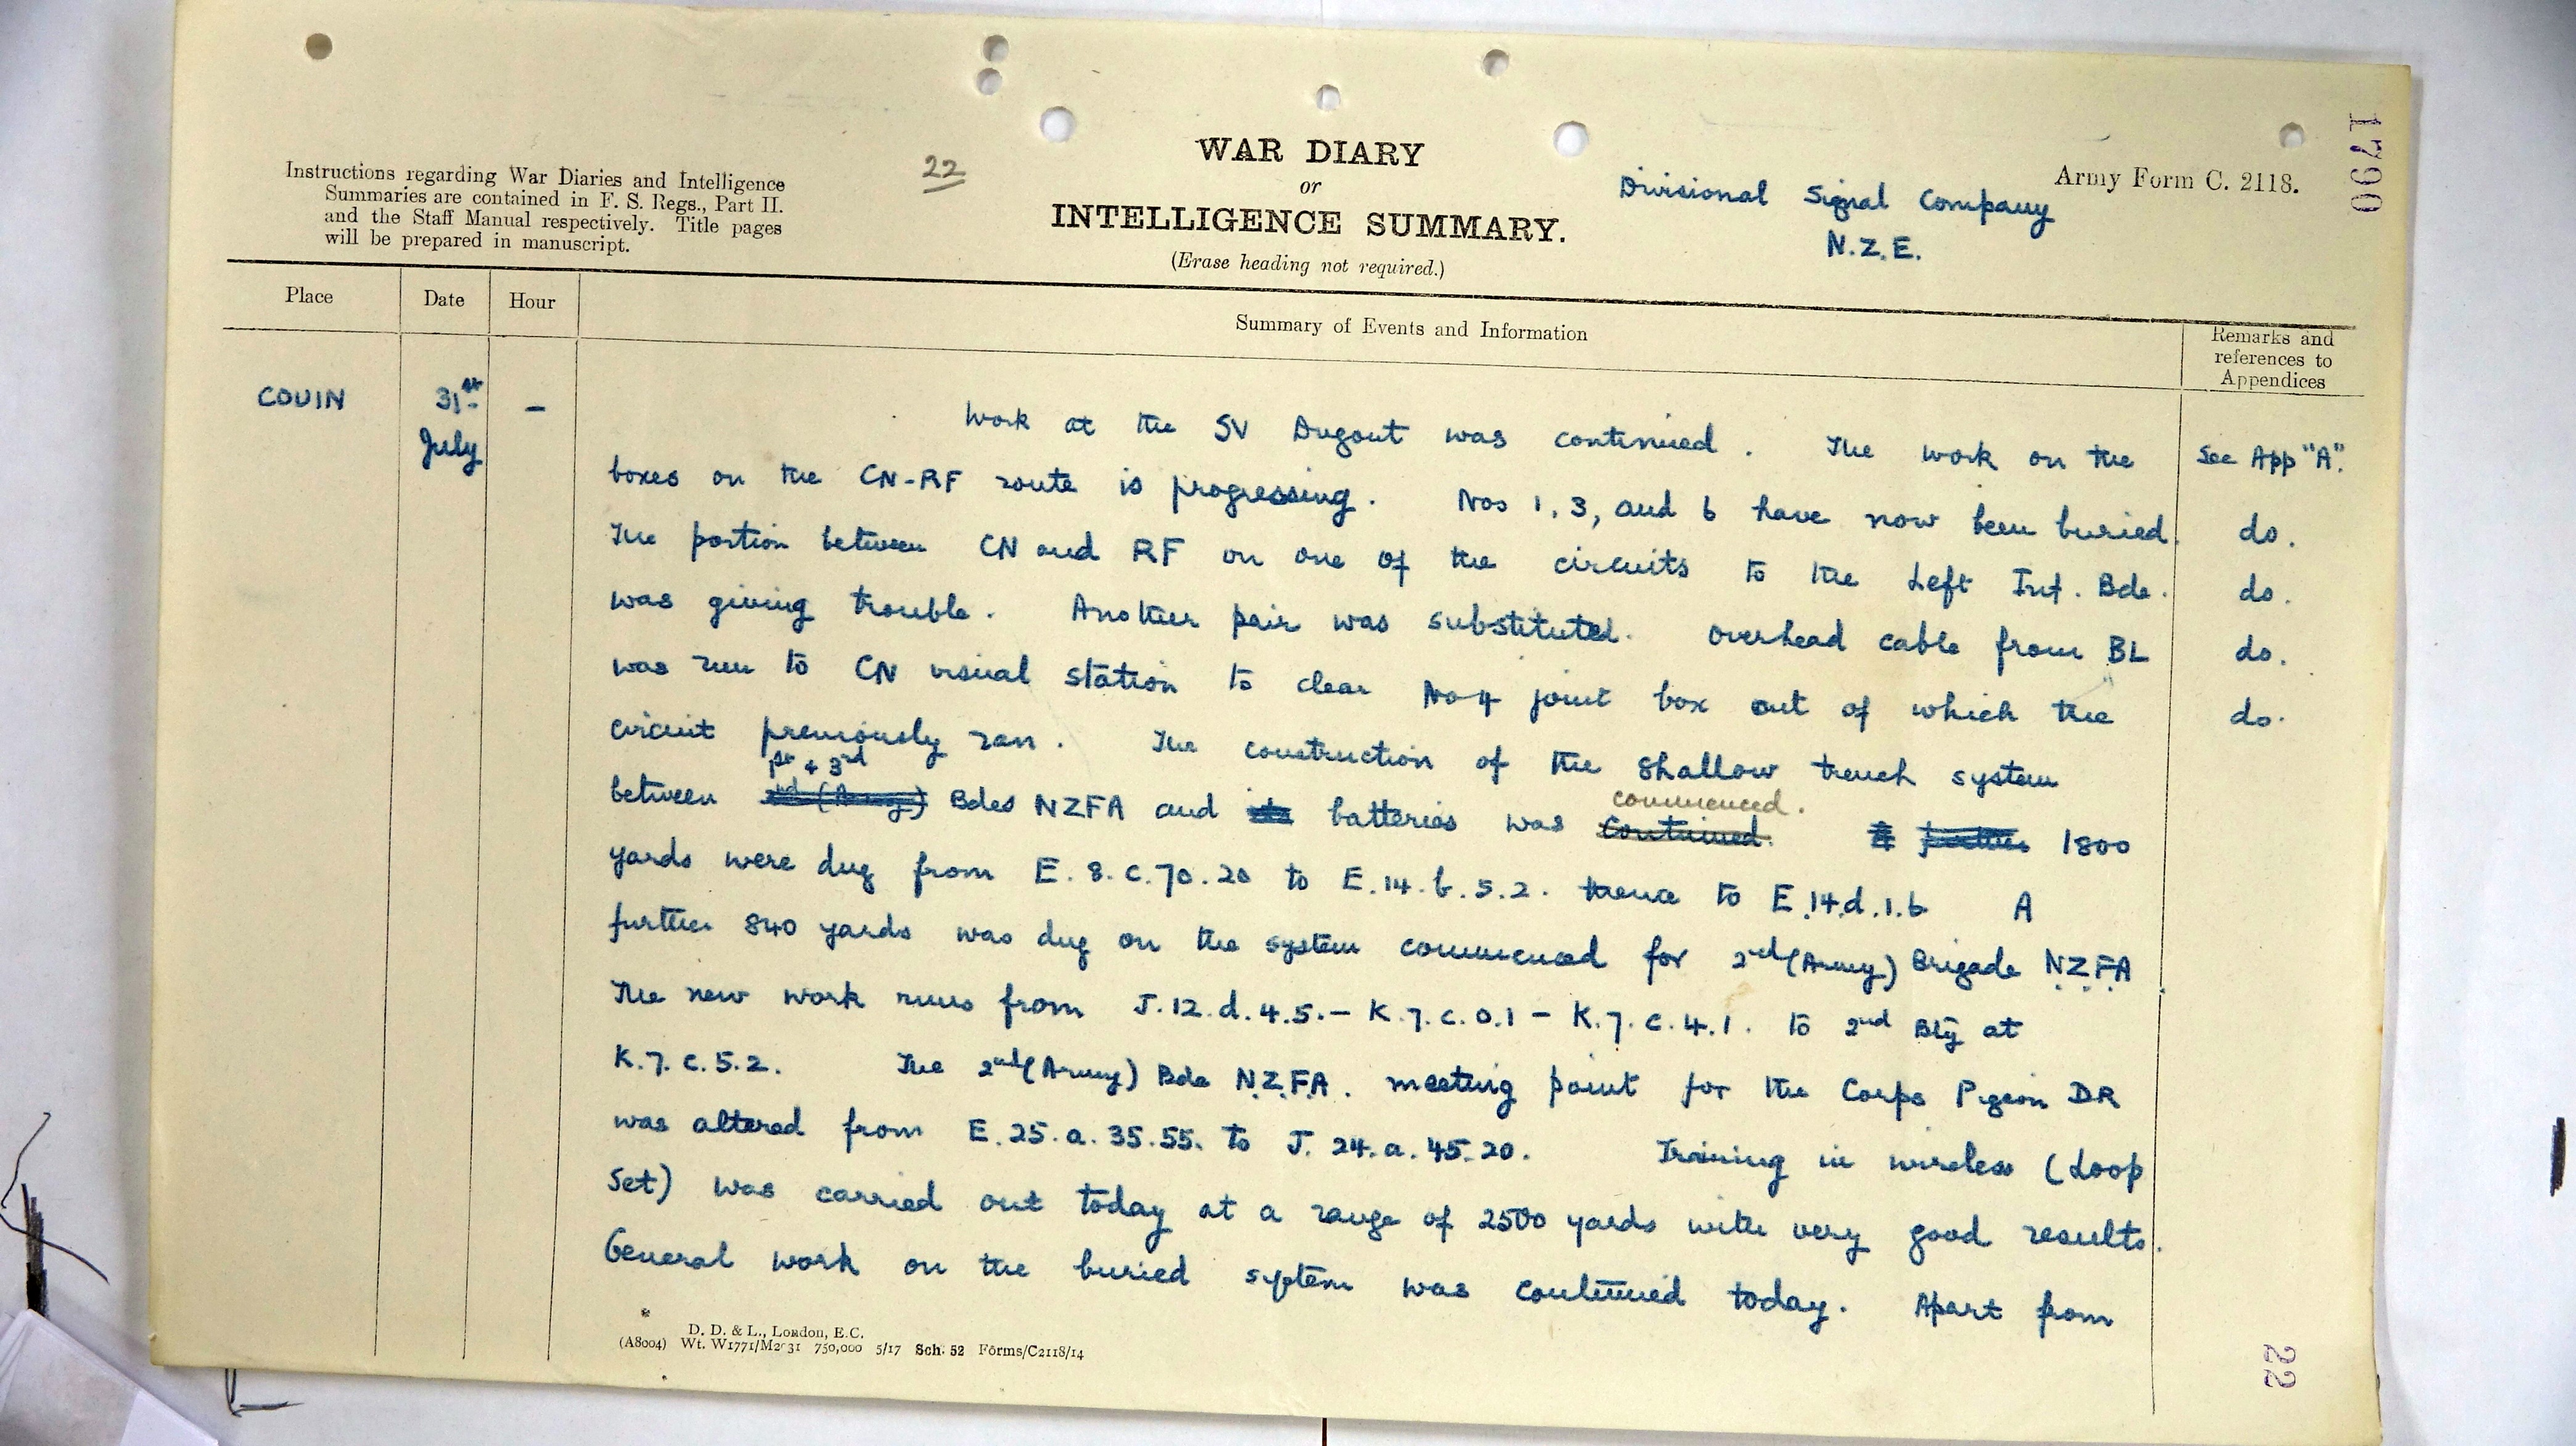 1790
22
WAR DIARY
or
INTELLIGENCE SUMMARY.
(Erase heading not required.)
Instructions regarding War Diaries and Intelligence
Summaries are contained in F. S. Regs., Part II.
and the Staff Manual respectively. Title pages
will be prepared in manuscript.
Army Form C. 2118.
Divisional Signal Company
N.Z.E.
Place Date Hour Summary of Events and Information Remarks and
references to
Appendices
COUIN 31st July -
Work at the SV Dugout was continued. The work on the See App "A".
boxes on the CN-RF route is progressing. Nos 1, 3, and 6 have now been buried. do.
The portion between CN and RF on one of the circuits to the Left Inf. Bde. do.
was giving trouble. Another pair was substituted. Overhead cable from BL do.
was run to CN visual station to clear No 4 joint box out of which the do.
circuit previously ran. The construction of the shallow trench system
1st + 3rd
between 2nd (Army) Bdes NZFA and batteries was continued. commenced. further 1800
yards were dug from E.8.c.70.20 to E.14.b.5.2. thence to E.14.d.1.6 A
further 840 yards was dug on the system commenced for 2nd (Army) Brigade N.Z.F.A.
The new work runs from J.12.d.4.5. - K.7.c.0.1 - K.7.c.4.1. to 2nd Bty at
K.7.c.5.2. The 2nd (Army) Bde N.Z.F.A. meeting point for the Corps Pigeon DR
was altered from E.25.a.35.55. to J.24.a.45.20. Training in wireless (Loop
Set) was carried out today at a range of 2500 yards with very good results.
General work on the buried system was continued today. Apart from
D. D. & L., London, E.C.
(A8004) Wt. W1771/M2031 750,000 5/17 Sch. 52 Forms/C2118/14
22